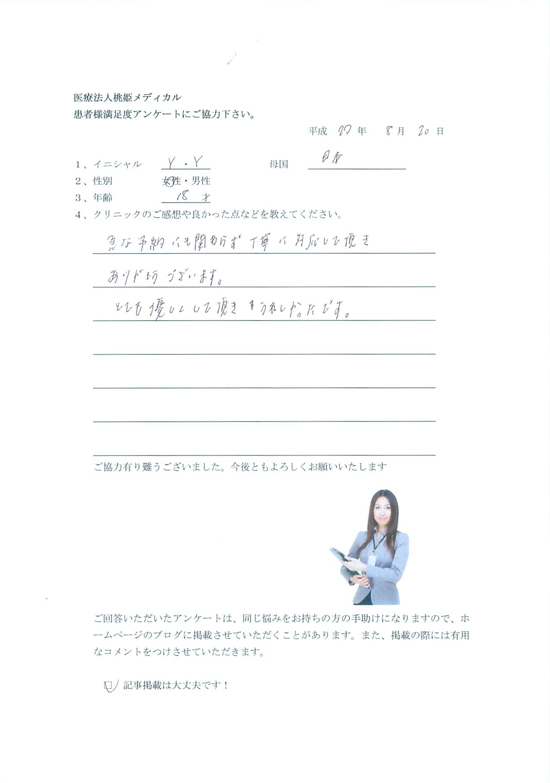 医療法人桃姫メディカル
患者様満足度アンケートにご協力下さい。
平成 27 年 8 月 20 日
1、イニシャル Y・Y 母国 日本
2、性別 女性・男性
3、年齢 18 才
4、クリニックのご感想や良かった点などを教えてください。
急な予約にも関わらず丁寧に対応して頂き
ありがとうございます。
とても優しくして頂き うれしかったです。
ご協力有り難うございました。今後ともよろしくお願いいたします
ご回答いただいたアンケートは、同じ悩みをお持ちの方の手助けになりますので、ホ
ームページのブログに掲載させていただくことがあります。また、掲載の際には有用
なコメントをつけさせていただきます。
記事掲載は大丈夫です！